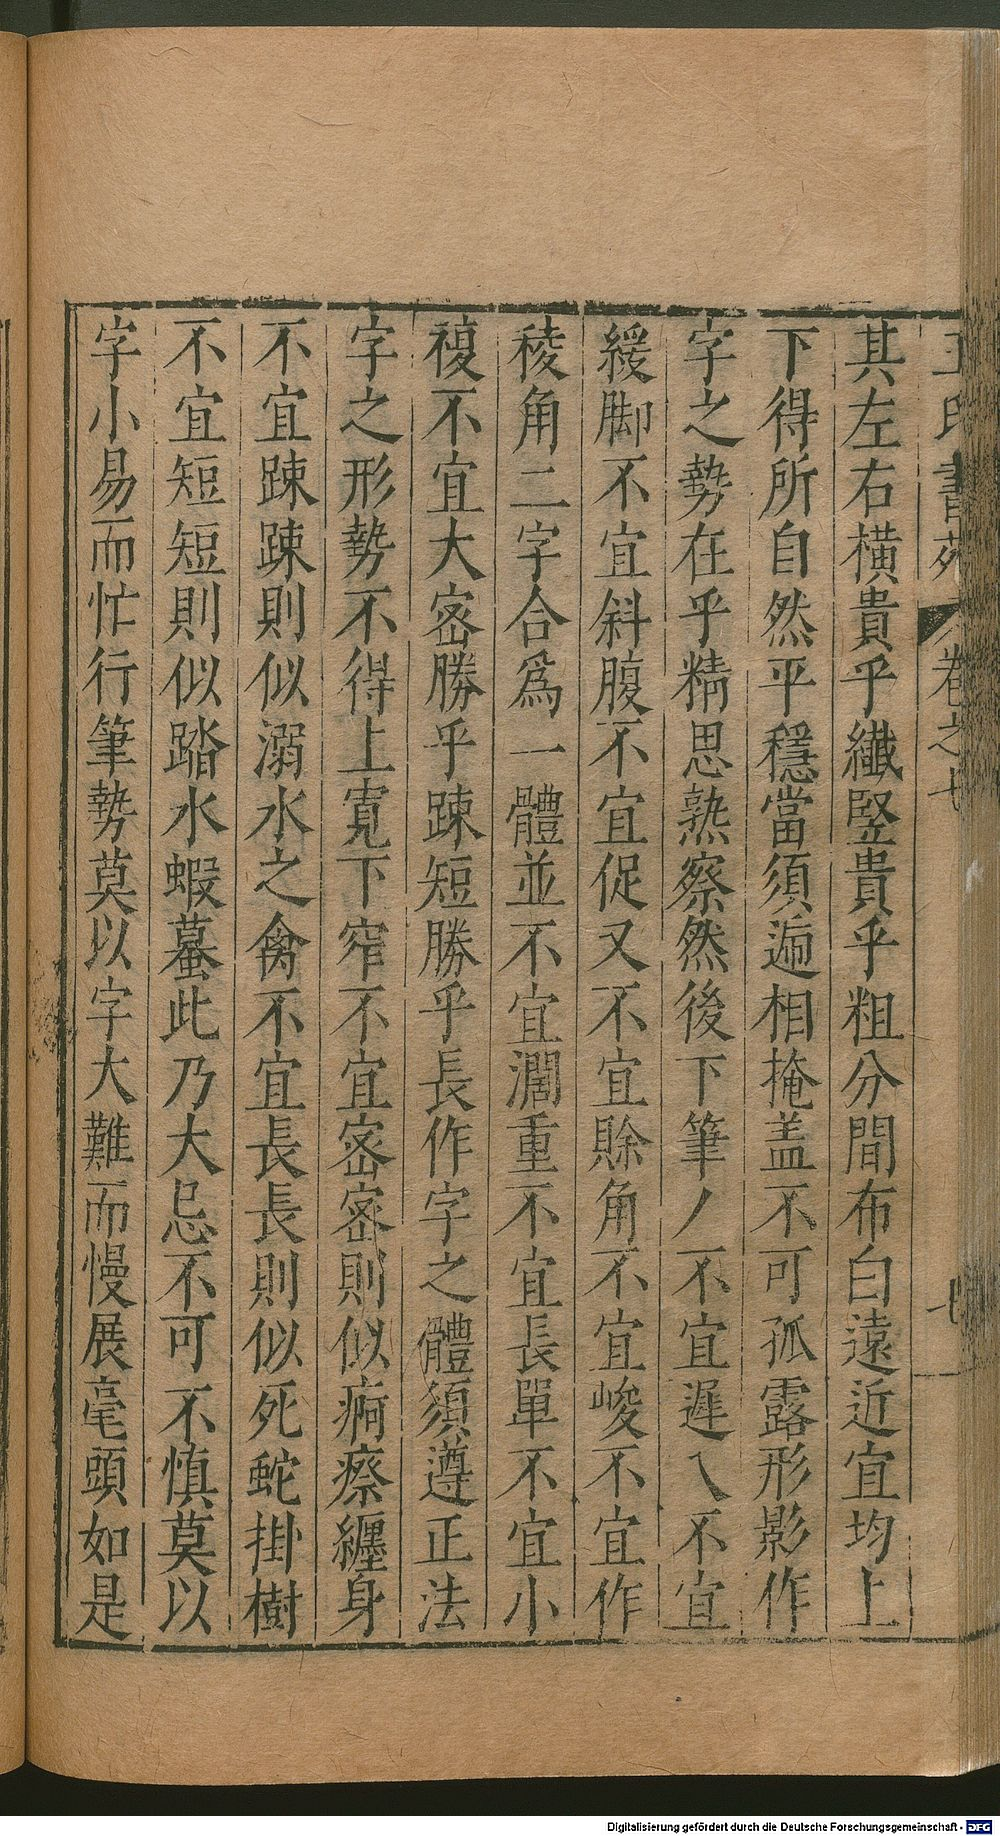 王氏書苑 卷之七 七
其左右橫貴乎纖竪貴乎粗分間布白遠近宜均上
下得所自然平穩當須遞相掩盖不可孤露形影作
字之勢在乎精思熟察然後下筆丿不宜遲乀不宜
緩脚不宜斜腹不宜促又不宜賒角不宜峻不宜作
稜角二字合爲一體並不宜濶重不宜長單不宜小
複不宜大密勝乎踈短勝乎長作字之體須遵正法
字之形勢不得上寛下窄不宜密密則似痾瘵纏身
不宜踈踈則似溺水之禽不宜長長則似死蛇掛樹
不宜短短則似踏水蝦蟇此乃大忌不可不慎莫以
字小易而忙行筆勢莫以字大難而慢展毫頭如是
Digitalisierung gefördert durch die Deutsche Forschungsgemeinschaft - DFG